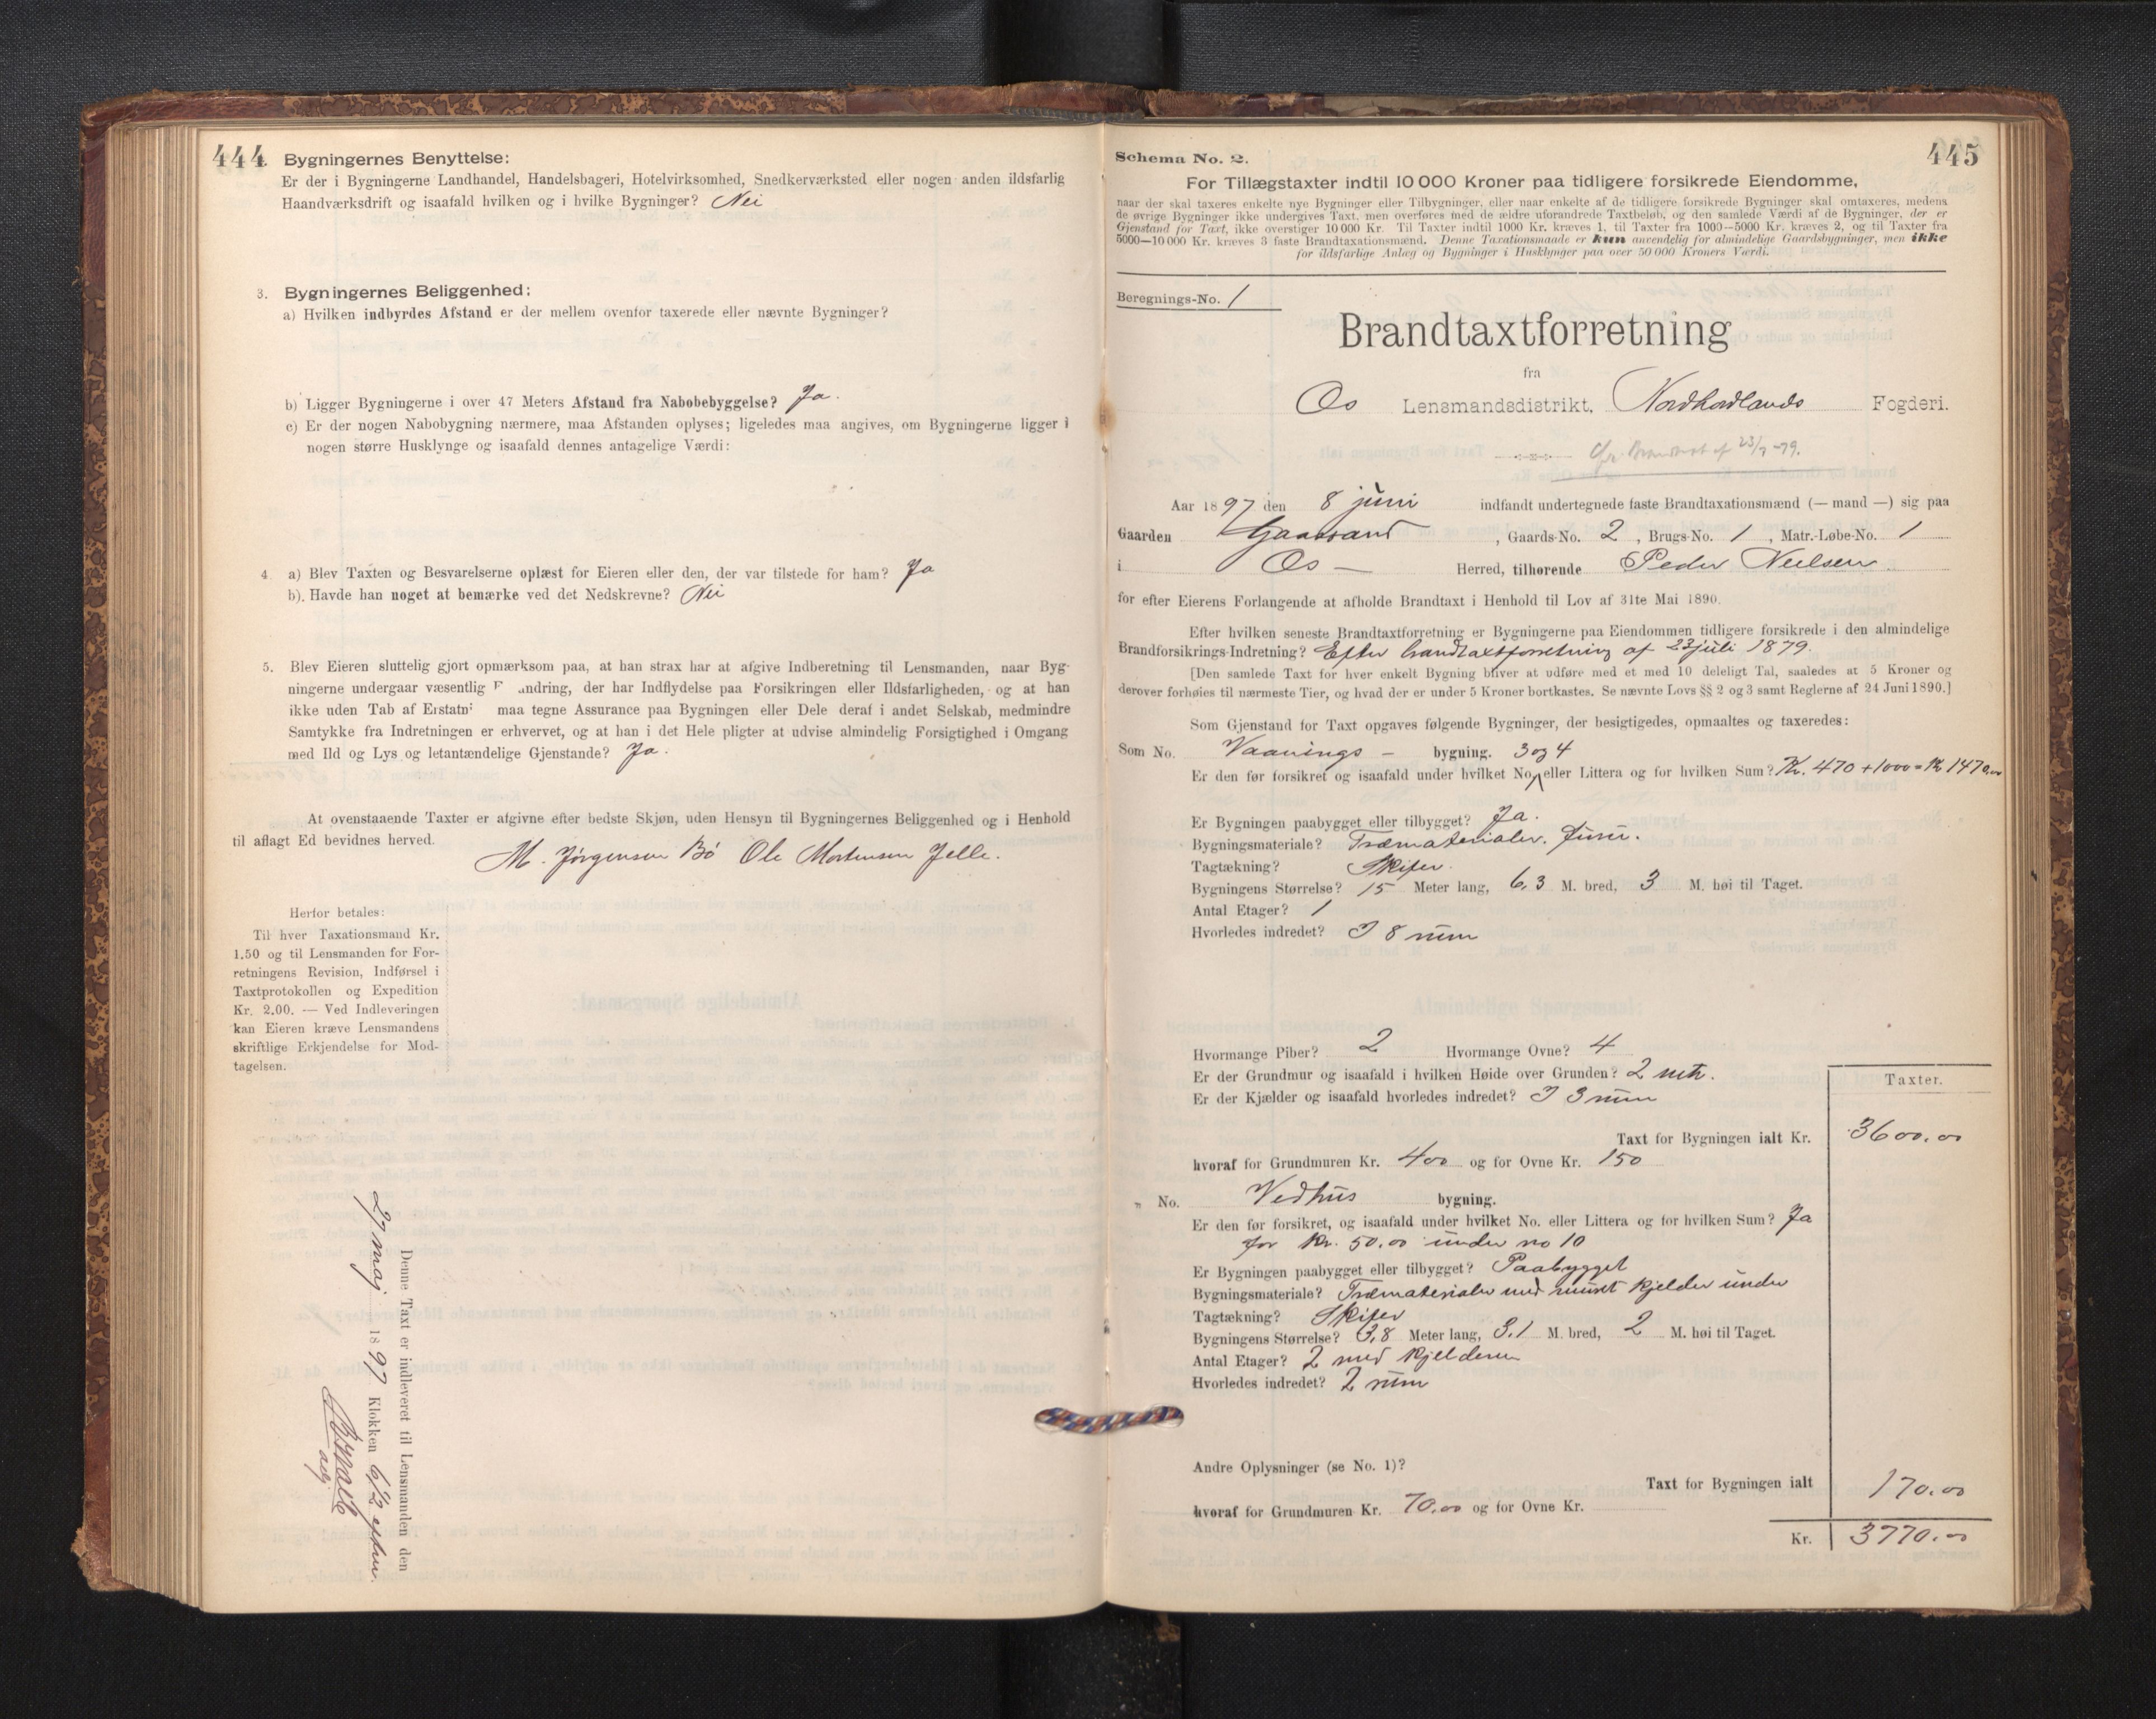 444
Bygningernes Benyttelse:
Er der i Bygningerne Landhandel, Handelsbageri, Hotelvirksomhed, Snedkerværksted eller nogen anden ildsfarlig
Haandværksdrift og isaafald hvilken og i hvilke Bygninger? Nei
3. Bygningernes Beliggenhed:
a) Hvilken indbyrdes Afstand er der mellem ovenfor taxerede eller nævnte Bygninger?
b) Ligger Bygningerne i over 47 Meters Afstand fra Nabobebyggelse? Ja.
c) Er der nogen Nabobygning nærmere, maa Afstanden oplyses; ligeledes maa angives, om Bygningerne ligger i
nogen større Husklynge og isaafald dennes antagelige Værdi:
4 a) Blev Taxten og Besvarelserne oplæst for Eieren eller den, der var tilstede for ham? Ja
b). Havde han noget at bemærke ved det Nedskrevne? Nei
5. Blev Eieren sluttelig gjort opmærksom paa, at han strax har at afgive Indberetning til Lensmanden, naar Byg-
ningerne undergaar væsentlig F andring, der har Indflydelse paa Forsikringen eller Ildsfarligheden, og at han
ikke uden Tab af Erstatn maa tegne Assurance paa Bygningen eller Dele deraf i andet Selskab, medmindre
Samtykke fra Indretningen er erhvervet, og at han i det Hele pligter at udvise almindelig Forsigtighed i Omgang
med Ild og Lys og letantændelige Gjenstande? Ja.
At ovenstaaende Taxter er afgivne efter bedste Skjøn, uden Hensyn til Bygningernes Beliggenhed og i Henhold
til aflagt Ed bevidnes herved.
M. Jørgensen Bø Ole Mortensen Jelle.
Herfor betales:
Til hver Taxationsmand Kr.
1.50 og til Lensmanden for For-
retningens Revision, Indførsel i
Taxtprotokollen og Expedition
Kr. 2.00. — Ved Indleveringen
kan Eieren kræve Lensmandens
skriftlige Erkjendelse for Mod-
tagelsen.
Denne Taxt er indleveret til Lensmanden den
27 maj 1897 Klokken 6 1/2 efterm.
445
Schema No. 2.
For Tillægstaxter indtil 10 000 Kroner paa tidligere forsikrede Eiendomme,
naar der skal taxeres enkelte nye Bygninger eller Tilbygninger, eller naar enkelte af de tidligere forsikrede Bygninger skal omtaxeres, medens
de øvrige Bygninger ikke undergives Taxt, men overføres med de ældre uforandrede Taxtbeløb, og den samlede Værdi af de Bygninger, der er
Gjenstand for Taxt, ikke overstiger 10 000 Kr. Til Taxter indtil 1000 Kr. kræves 1, til Taxter fra 1000—5000 Kr. kræves 2, og til Taxter fra
5000—10 000 Kr. kræves 3 faste Brandtaxationsmænd. Denne Taxationsmaade er kun anvendelig for almindelige Gaardsbygninger, men ikke
for ildsfarlige Anlæg og Bygninger i Husklynger paa over 50 000 Kroners Værdi.
Beregnings-No. 1
Brandtaxtforretning
fra
Os Lensmandsdistrikt, Nordhordlands Fogderi.
cfr. Brandtaxt af 23/7-79.
Aar 1897 den 8 juni indfandt undertegnede faste Brandtaxationsmænd (— mand —) sig paa
Gaarden Gaassand, Gaards-No. 2, Brugs-No. 1, Matr.-Løbe-No. 1
i Os — Herred, tilhørende Peder Nielsen
for efter Eierens Forlangende at afholde Brandtaxt i Henhold til Lov af 31te Mai 1890.
Efter hvilken seneste Brandtaxtforretning er Bygningerne paa Eiendommen tidligere forsikrede i den almindelige
Brandforsikrings-Indretning? Efter brandtaxtforretning af 23 juli 1879.
[Den samlede Taxt for hver enkelt Bygning bliver at udføre med et med 10 deleligt Tal, saaledes at 5 Kroner og
derover forhøies til nærmeste Tier, og hvad der er under 5 Kroner bortkastes. Se nævnte Lovs §§ 2 og 3 samt Reglerne af 24 Juni 1890.]
Som Gjenstand for Taxt opgaves følgende Bygninger, der besigtigedes, opmaaltes og taxeredes:
Som No. Vaanings — bygning. 3 og 4
Er den før forsikret og isaafald under hvilket No. eller Littera og for hvilken Sum? Kr. 470 + 1000 = Kr 1470.00
Er Bygningen paabygget eller tilbygget? Ja.
Bygningsmateriale? Træmaterialer. furu.
Tagtækning? Skifer.
Bygningens Størrelse? 15 Meter lang, 6,3 M. bred, 3 M. høi til Taget.
Antal Etager? 1
Hvorledes indredet? I 8 rum
Hvormange Piber? 2 Hvormange Ovne? 4
Er der Grundmur og isaafald i hvilken Høide over Grunden? 2 mtr.
Er der Kjælder og isaafald hvorledes indredet? I 3 rum
Taxter.
Taxt for Bygningen ialt Kr. 3600.00
hvoraf for Grundmuren Kr. 400 og for Ovne Kr. 150
" No. Vedhus bygning.
Er den før forsikret, og isaafald under hvilket No. eller Littera og for hvilken Sum? Ja
for kr. 50.00 under no 10
Er Bygningen paabygget eller tilbygget? Paabygget
Bygningsmateriale? Træmaterialer med muret kjelder under
Tagtækning? Skifer
Bygningens Størrelse? 3,8 Meter lang, 3,1 M. bred, 2 M. høi til Taget.
Antal Etager? 2 med kjelderen
Hvorledes indredet? 2 rum
Andre Oplysninger (se No. 1)?
Taxt for Bygningen ialt 170.00
hvoraf for Grundmuren Kr. 70.00 og for Ovne Kr.
Kr. 3770.00